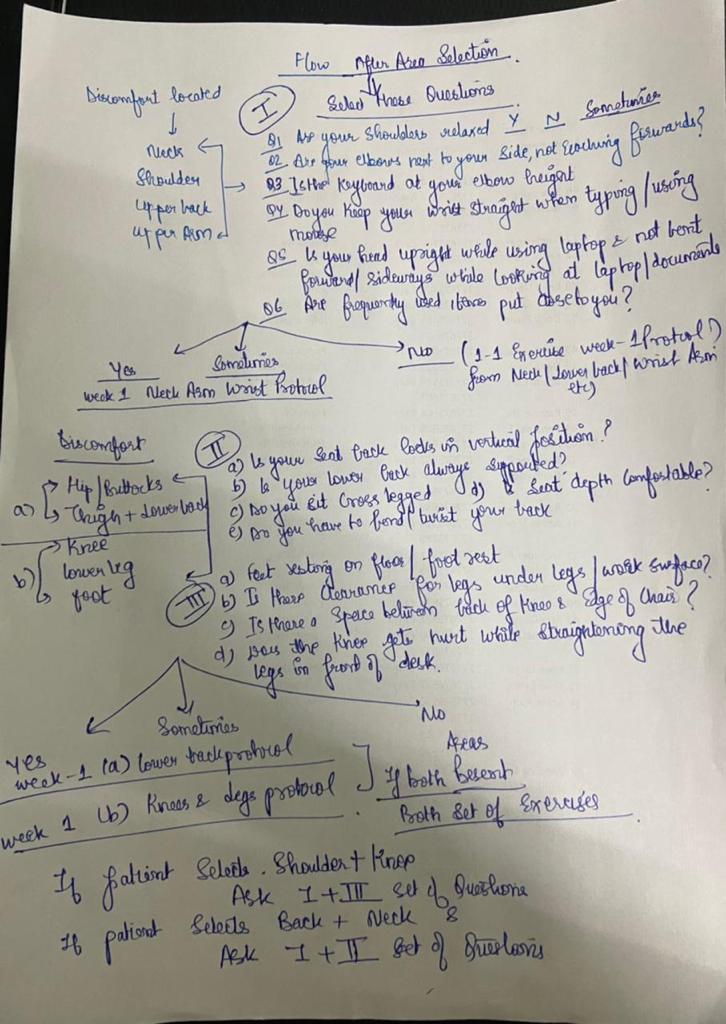 Flow After Area Selection
Select these Questions
Discomfort located
Neck
Shoulder
Upper back
Upper Arm
I
Y N Sometimes
Q1 Are your Shoulders relaxed
Q2 Are your elbows next to your side, not reaching forwards?
Q3 Is the Keyboard at your elbow height
Q4 Do you keep your wrist straight when typing/using
mouse
Q5 Is your head upright while using laptop & not bent
forward/sideways while looking at laptop/documents
Q6 Are frequently used items put close to you?
Yes
Sometimes
No (1-1 Exercise week-1 Protocol)
from Neck/Lower back/wrist Arm
etc)
week 1 Neck Arm Wrist Protocol
Discomfort
a) Hip/Buttocks
Thigh + Lower back
b) Knee
lower leg
foot
II
a) Is your Seat back locks in vertical position?
b) Is your lower back always supported?
c) Do you sit Cross legged d) Is Seat depth comfortable?
e) Do you have to bend/twist your back
III
a) Feet resting on floor/foot rest
b) Is there clearance for legs under legs/work surface?
c) Is there a space between back of knee & Edge of Chair?
d) Does the Knee gets hurt while straightening the
legs in front of desk.
Yes
Sometimes
No
week-1 (a) lower back protocol
week 1 (b) Knees & legs protocol
Areas
If both Present
Both Set of Exercises
If patient Selects Shoulder + Knee
Ask I + III Set of Questions
If patient Selects Back + Neck &
Ask I + II Set of Questions